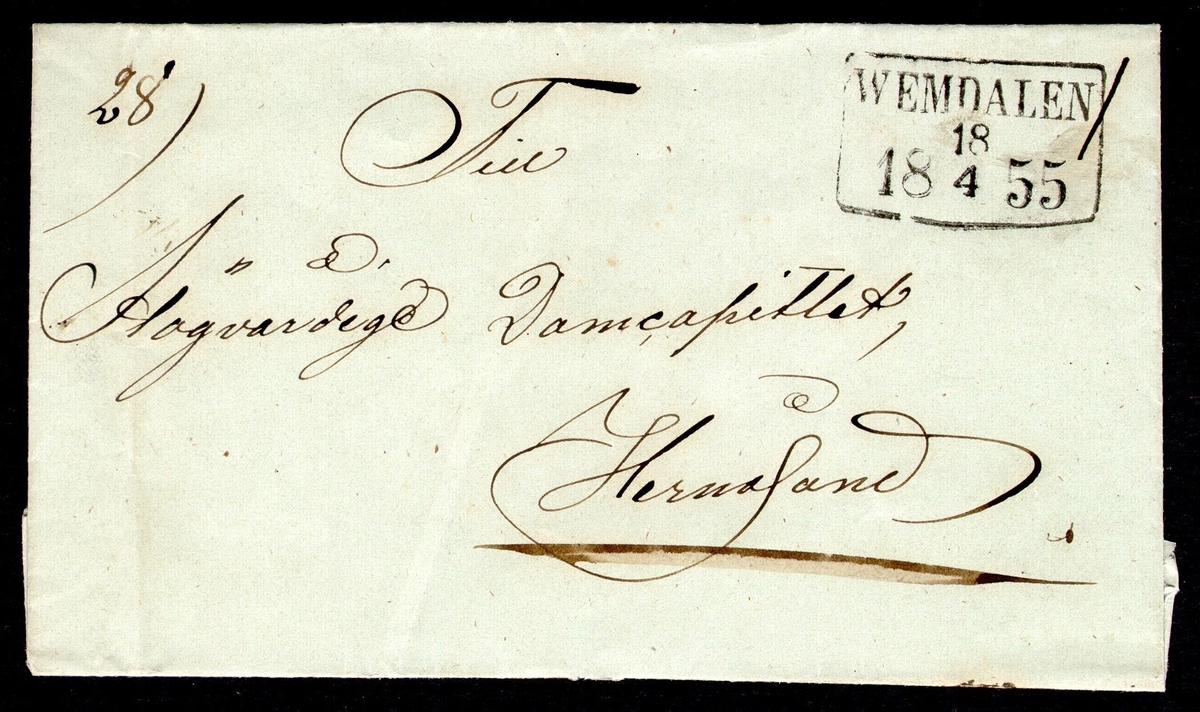 28)
Till
WEMDALEN
18
18 4 55
Högvärdige Domcapitlet,
Hernösand